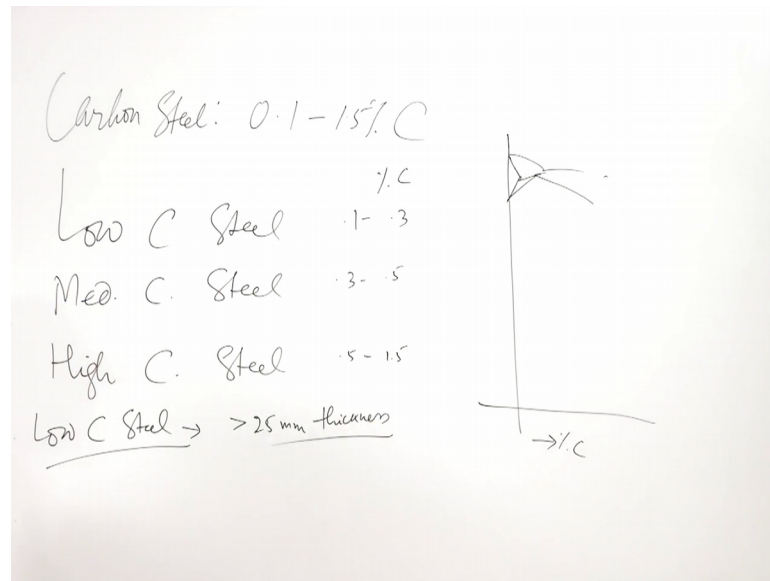 Carbon Steel: 0.1-15% C
% C
Low C Steel .1- .3
Med. C. Steel .3- .5
High C. Steel .5-1.5
Low C Steel → >25mm thickness
→% C